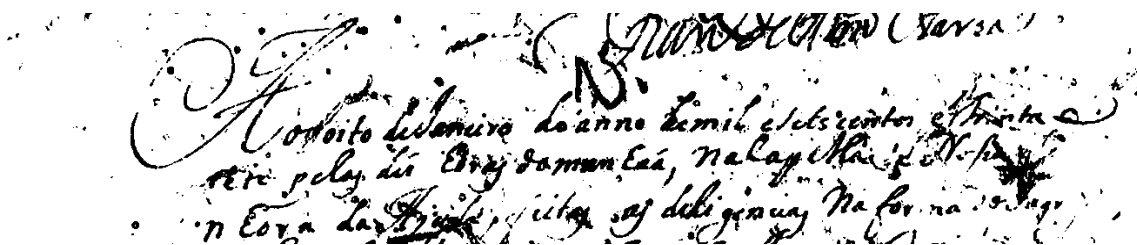 Aos oito de Janeiro do anno de mil e seis centos e trinta e
sete pelas dés horas da munhaã, na Capella de Nossa
nhora da Ajuda, feitas as diligencias na forma do Sagr